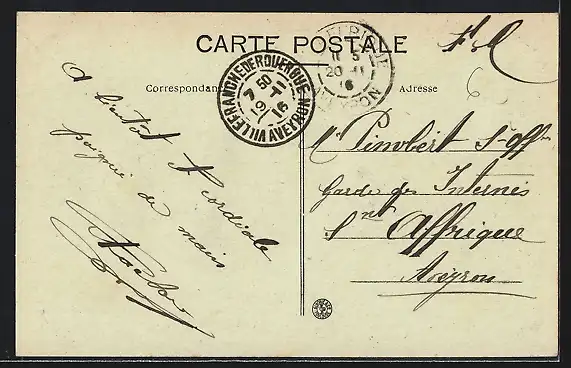 CARTE POSTALE
Correspondance
Adresse
F. M.
6
VILLEFRANCHE DE ROUERGUE
7 50
19 -11
16
AVEYRON
AFFRIQUE
11 5
20 -11
16
AVEYRON
A bientôt & cordiale
poignée de main
Mr Pimobert S-Offr
Garde des Internés
St Affrique
Aveyron